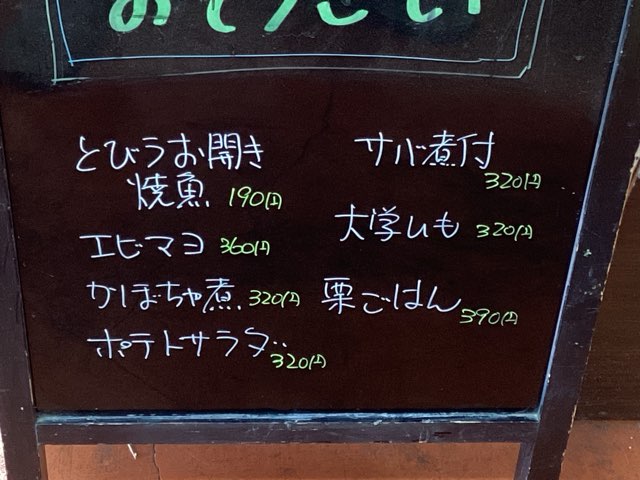 おそうざい
とびうお開き
焼魚 190円
エビマヨ 360円
かぼちゃ煮 320円
ポテトサラダ 320円
サバ煮付
320円
大学いも 320円
栗ごはん 390円